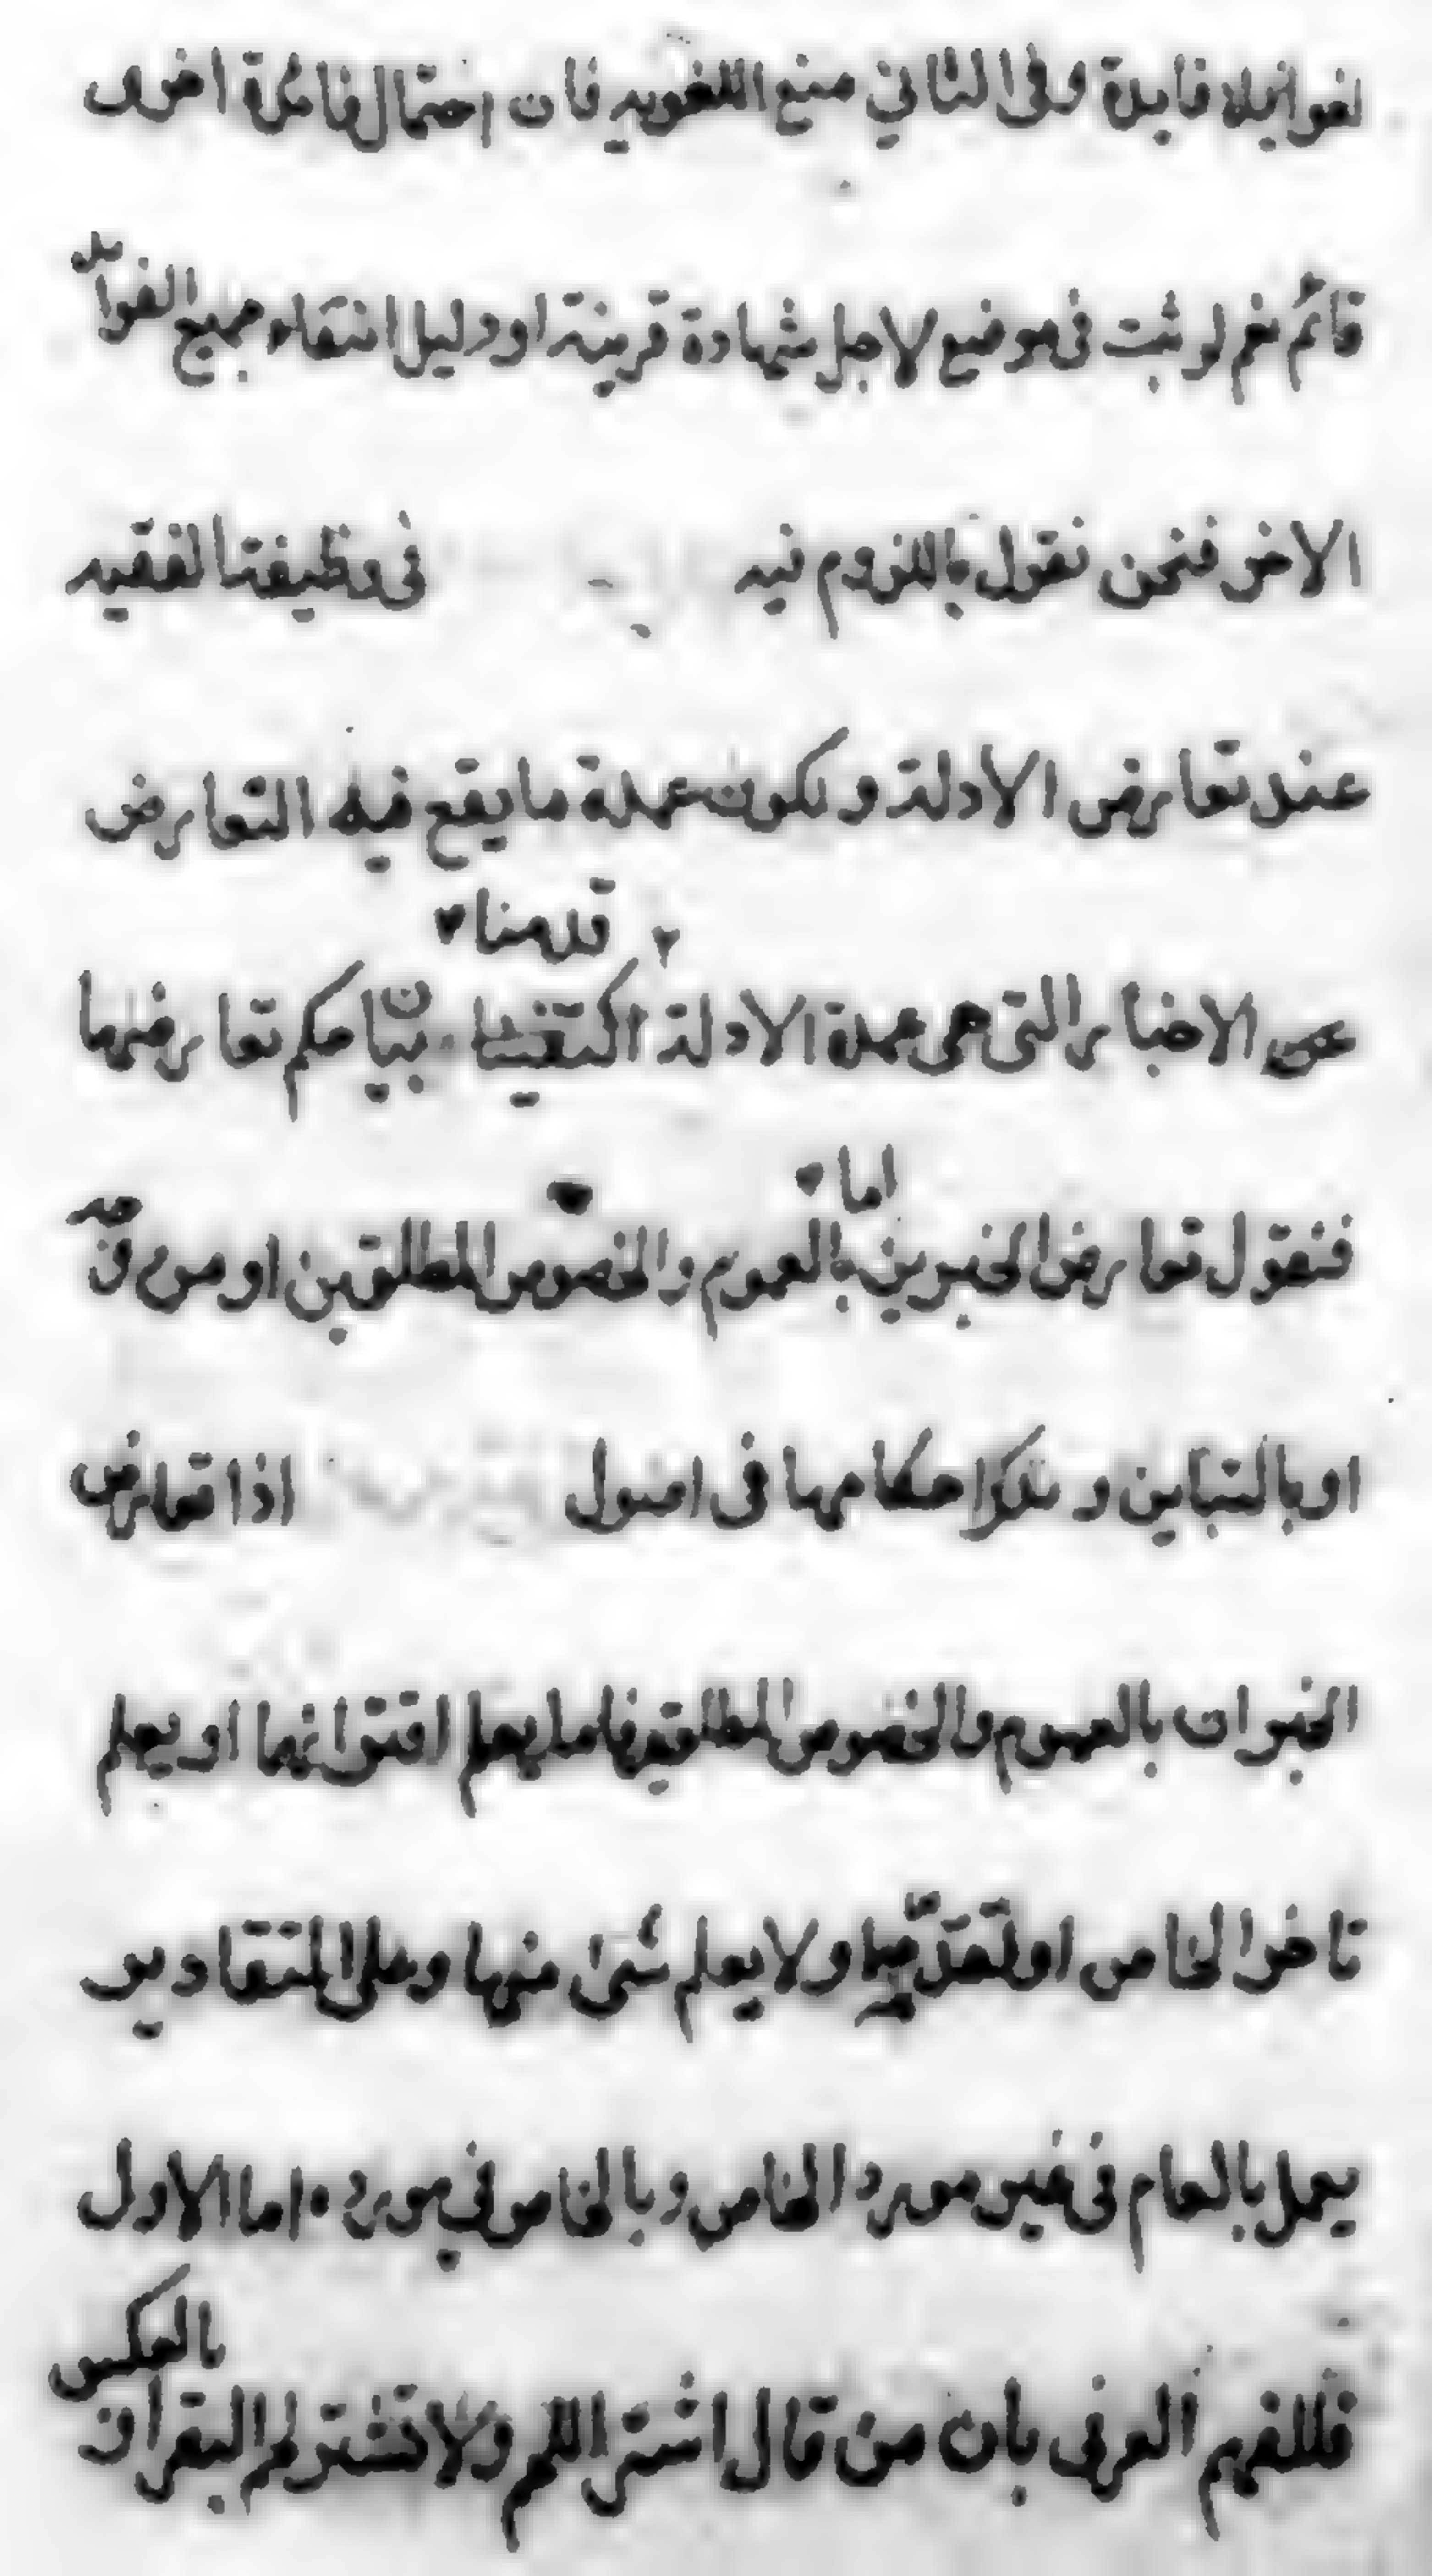 لغوا بلا فايدة وفى الثاني منع اللغويه فان احتمال فائدة اخرى
قائم نعم لو ثبت فى موضع لاجل شهادة قرينة او دليل انتفاء جميع الفوايد
الاخر فنحن نقول باللزوم فيه فى وظيفة الفقيه
عند تعارض الادلة و لكون عمدة ما يقع فيه التعارض
قدمنا
هى الاخبار التى هى عمدة الادلة بيان حكم تعارضها
اما
فنقول تعارض الخبرين بالعموم والخصوص المطلقين او من وجه
او بالتباين و نذكر احكامها فى اصول اذا تعارض
الخبران بالعموم والخصوص المطلقين فاما يعلم اقترانهما او يعلم
تاخر الخاص او تقدمه او لا يعلم شىء منها وعلى التقادير
يعمل بالعام فى غير مورد الخاص و بالخاص فى مورده اما الاول
فللفهم العرفى بان من قال اشتر اللحم ولا تشتر لحم البقر او
بالعكس